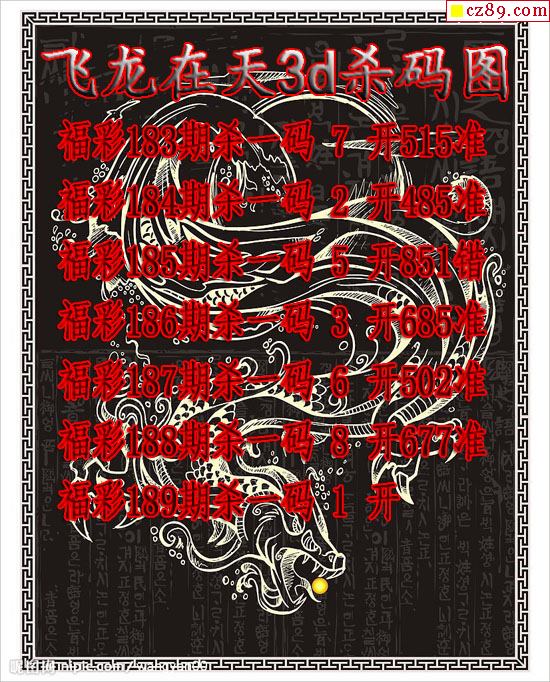 cz89.com
飞龙在天3d杀码图
福彩183期杀一码 7 开515准
福彩184期杀一码 2 开485准
福彩185期杀一码 5 开851错
福彩186期杀一码 3 开685准
福彩187期杀一码 6 开502准
福彩188期杀一码 8 开677准
福彩189期杀一码 1 开